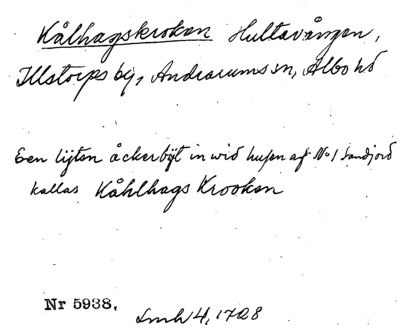 Kålhagskroken Hultavången,
Illstorps by, Andrarums sn, Albo hd
Een lijten åckerbijt in wid husen af No 1 Landjord
kallas Kåhlhags Krooken
Nr 5938.
Lmh 4, 1708